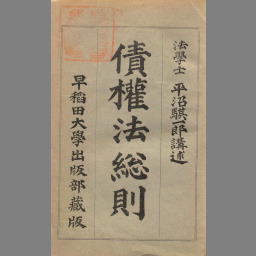 法學士 平沼騏一郎講述
債權法総則
早稻田大學出版部藏版